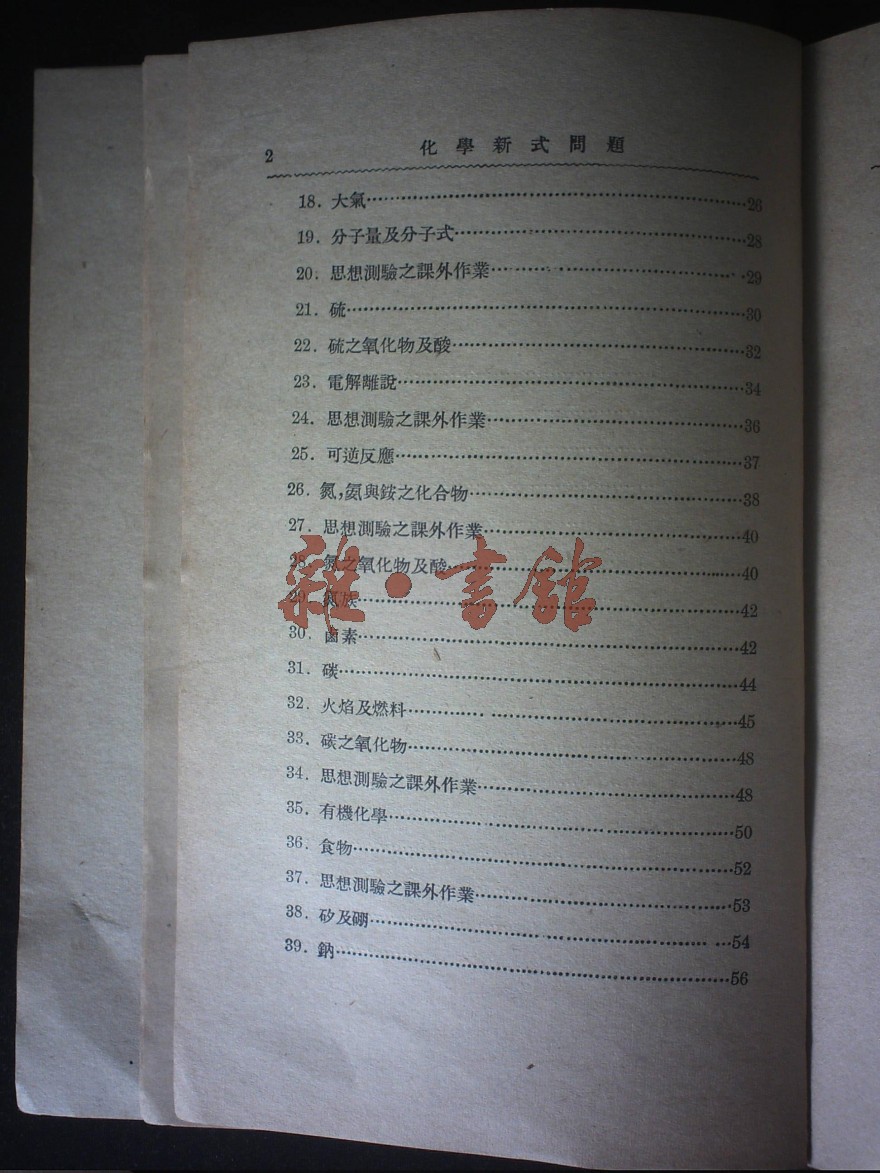 2 化學新式問題
18. 大氣…26
19. 分子量及分子式…28
20. 思想測驗之課外作業…29
21. 硫…30
22. 硫之氧化物及酸…32
23. 電解離說…34
24. 思想測驗之課外作業…36
25. 可逆反應…37
26. 氮,氨與銨之化合物…38
27. 思想測驗之課外作業…40
28. 氮之氧化物及酸…40
29. 氮族…42
30. 鹵素…42
31. 碳…44
32. 火焰及燃料…45
33. 碳之氧化物…48
34. 思想測驗之課外作業…48
35. 有機化學…50
36. 食物…52
37. 思想測驗之課外作業…53
38. 矽及硼…54
39. 鈉…56
雜·書館